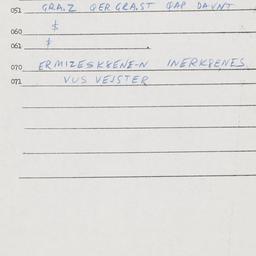 051 GRA.Z GER GRA.ST GAP DAVNT
060 $
061 $
070 ERMIZESK8ENE-N INERK8ENES
071 VUS VEJSTER